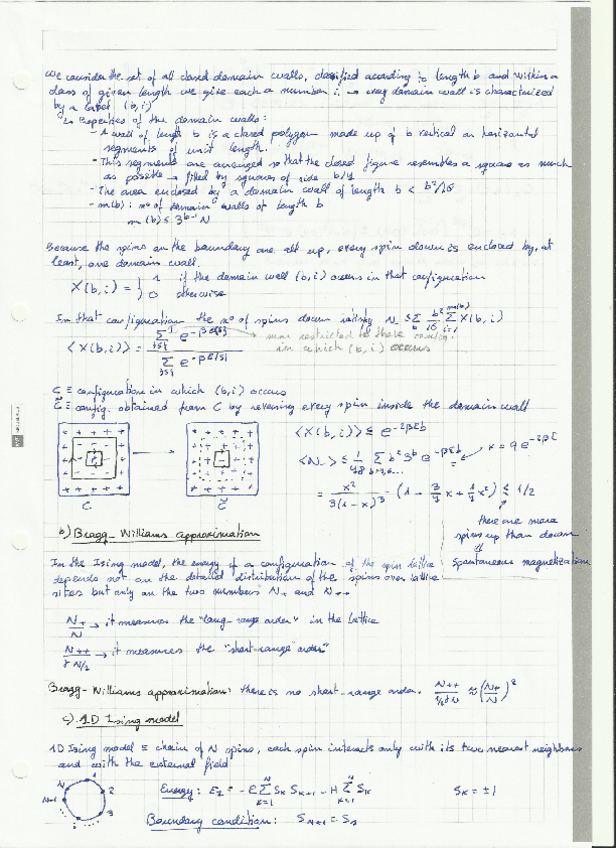 We consider the set of all closed domain walls, classified according to length b and within a
class of given length we give each a number i. → every domain wall is characterized
by a label (b,i)
↳ Properties of the domain walls:
- A wall of length b is a closed polygon made up of b vertical on horizontal
segments of unit length.
- This segments are arranged so that the closed figure resembles a square as much
as possible → filled by squares of side b/4
- The area enclosed by a domain wall of length b < b²/16
- m(b): nº of domain walls of length b
m(b) ≤ 3^{b-1} N
Because the spins on the boundary are all up, every spin down is enclosed by, at
least, one domain wall.
X(b,i) = { 1 if the domain wall (b,i) occurs in that configuration
0 otherwise
In that configuration the nº of spins down satisfy N_ ≤ Σ_b b²/16 Σ_{i=1}^{m(b)} X(b,i)
⟨X(b,i)⟩ = Σ'_{{s}} e^{-βE{s}} / Σ_{{s}} e^{-βE{s}} → sum restricted to those config.
in which (b,i) occurs
C ≡ configuration in which (b,i) occurs
C̃ ≡ config. obtained from C by reversing every spin inside the domain wall
⟨X(b,i)⟩ ≤ e^{-2βεb}
⟨N_⟩ ≤ 1/48 Σ_{b=4,6...} b² 3^b e^{-2βεb} x = 9 e^{-2βε}
= x²/3(1-x)³ (1 - 3/4 x + 1/4 x²) ≤ 1/2
C C̃
there are more
spins up than down
⇓
Spontaneous magnetization
b) Bragg-Williams approximation
In the Ising model, the energy of a configuration of the spin lattice
depends not on the detailed distribution of the spins over lattice
sites but only on the two numbers N+ and N++
N+/N → it measures the "long-range order" in the lattice
N++/γN/2 → it measures the "short-range order"
Bragg-Williams approximation: there is no short-range order. N++/½γN ≈ (N+/N)²
c) 1D Ising model
1D Ising model ≡ chain of N spins, each spin interacts only with its two nearest neighbours
and with the external field
N 1 2 3
N-1
Energy: E_I = -ε Σ_{k=1}^N S_k S_{k+1} - H Σ_{k=1}^N S_k S_k = ±1
Boundary condition: S_{N+1} = S_1